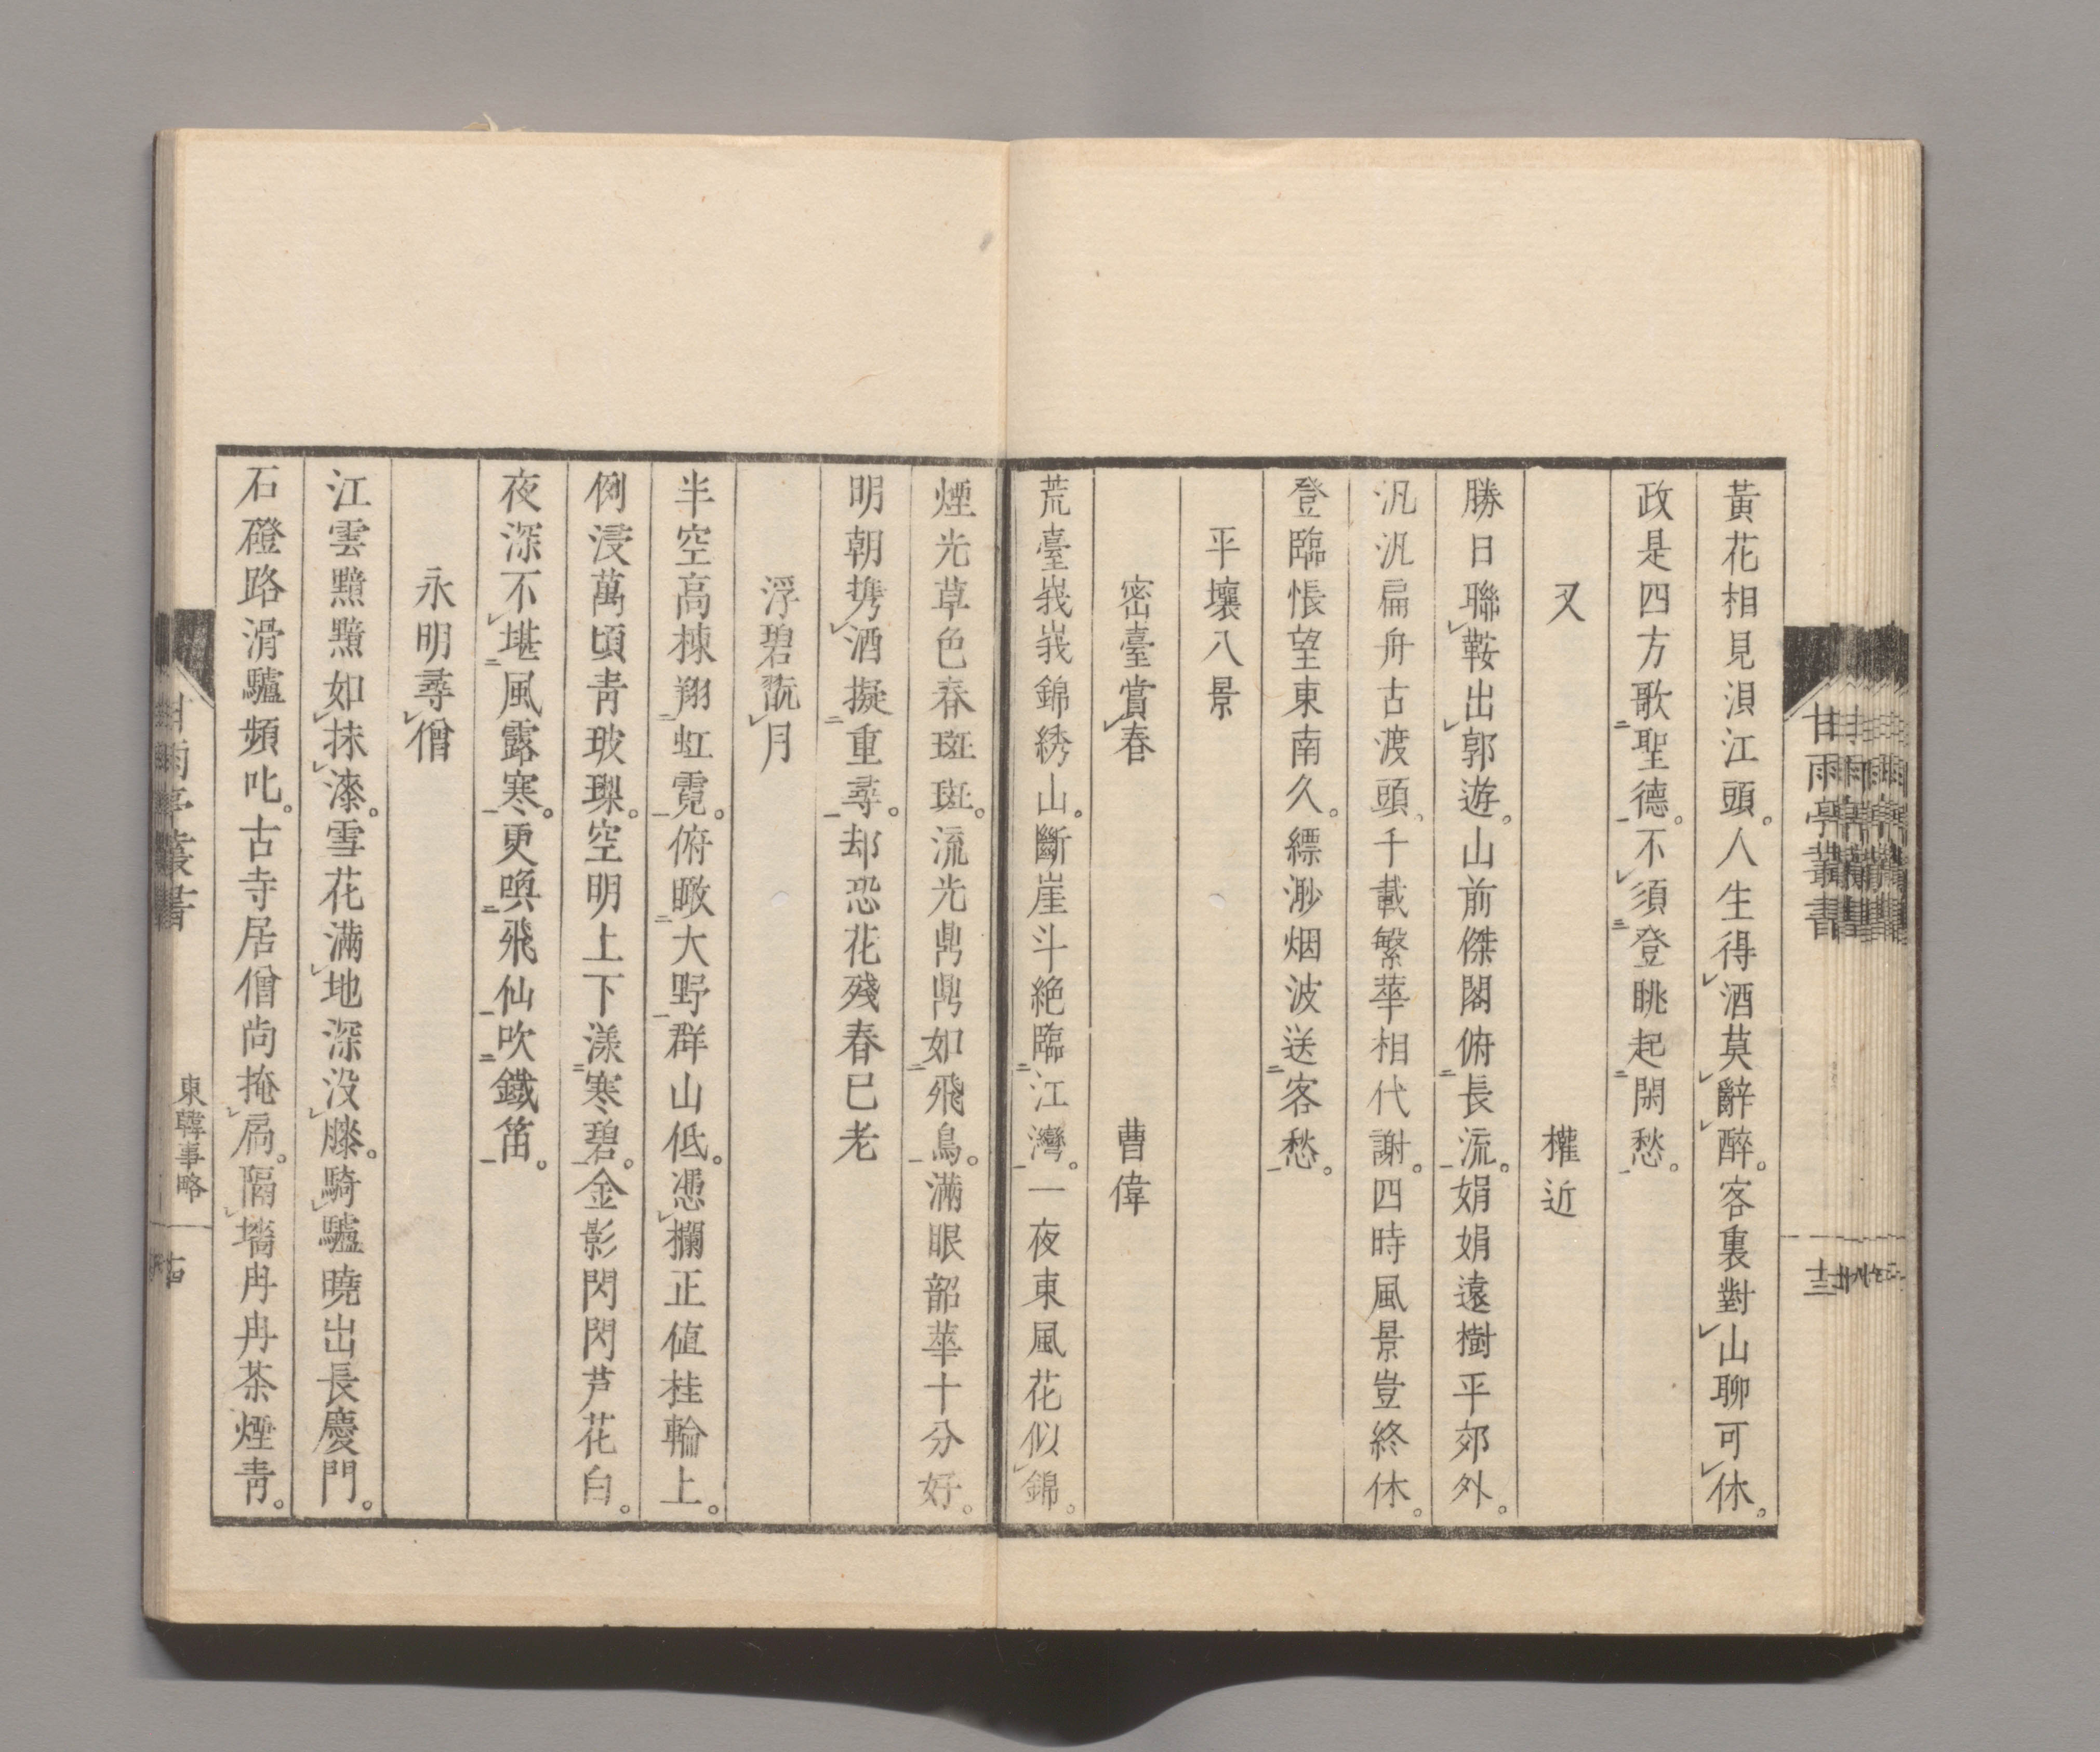 黃花相見浿江頭。人生得酒莫辭醉。客裏對山聊可休。
政是四方歌聖德。不須登眺起閑愁。
又　權近
勝日聯鞍出郭遊。山前傑閣俯長流。娟娟遠樹平郊外。
汎汎扁舟古渡頭、千載繁華相代謝。四時風景豈終休。
登臨悵望東南久。縹渺烟波送客愁。
平壤八景
密臺賞春　曹偉
荒臺峩峩錦綉山。斷崖斗絶臨江灣。一夜東風花似錦。
煙光草色春斑斑。流光鼎鼎如飛鳥。滿眼韶華十分好。
明朝携酒擬重尋。却恐花殘春已老
浮碧翫月
半空高棟翔虹霓。俯瞰大野群山低。憑欄正値桂輪上。
倒浸萬頃靑玻瓈。空明上下漾寒碧。金影閃閃芦花白。
夜深不堪風露寒。更喚飛仙吹鐵笛。
永明尋僧
江雲黯黯如抹漆。雪花滿地深沒膝。騎驢曉出長慶門。
石磴路滑驢頻叱。古寺居僧尙掩扃。隔墻冉冉茶煙靑。
甘雨亭叢書
十三
東韓事略
十四